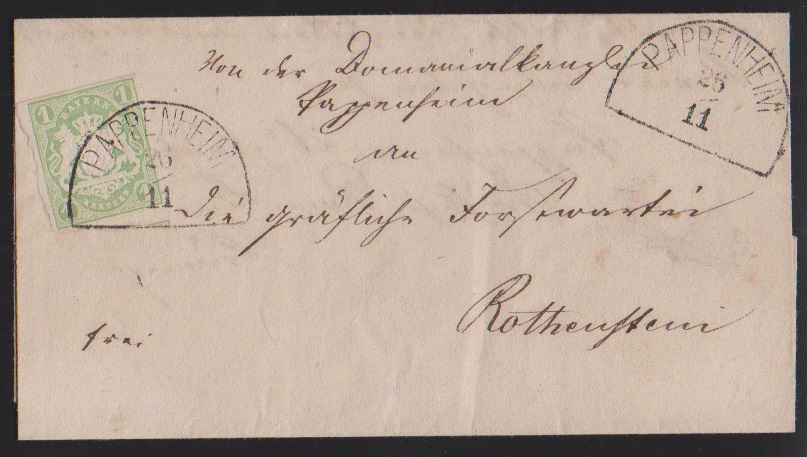 Von der Domanialkanzlei
Pappenheim
an
die gräfliche Forstwartei
Rothenstein
frei
1 BAYERN 1
KREUZER
PAPPENHEIM
26
11
PAPPENHEIM
26
11